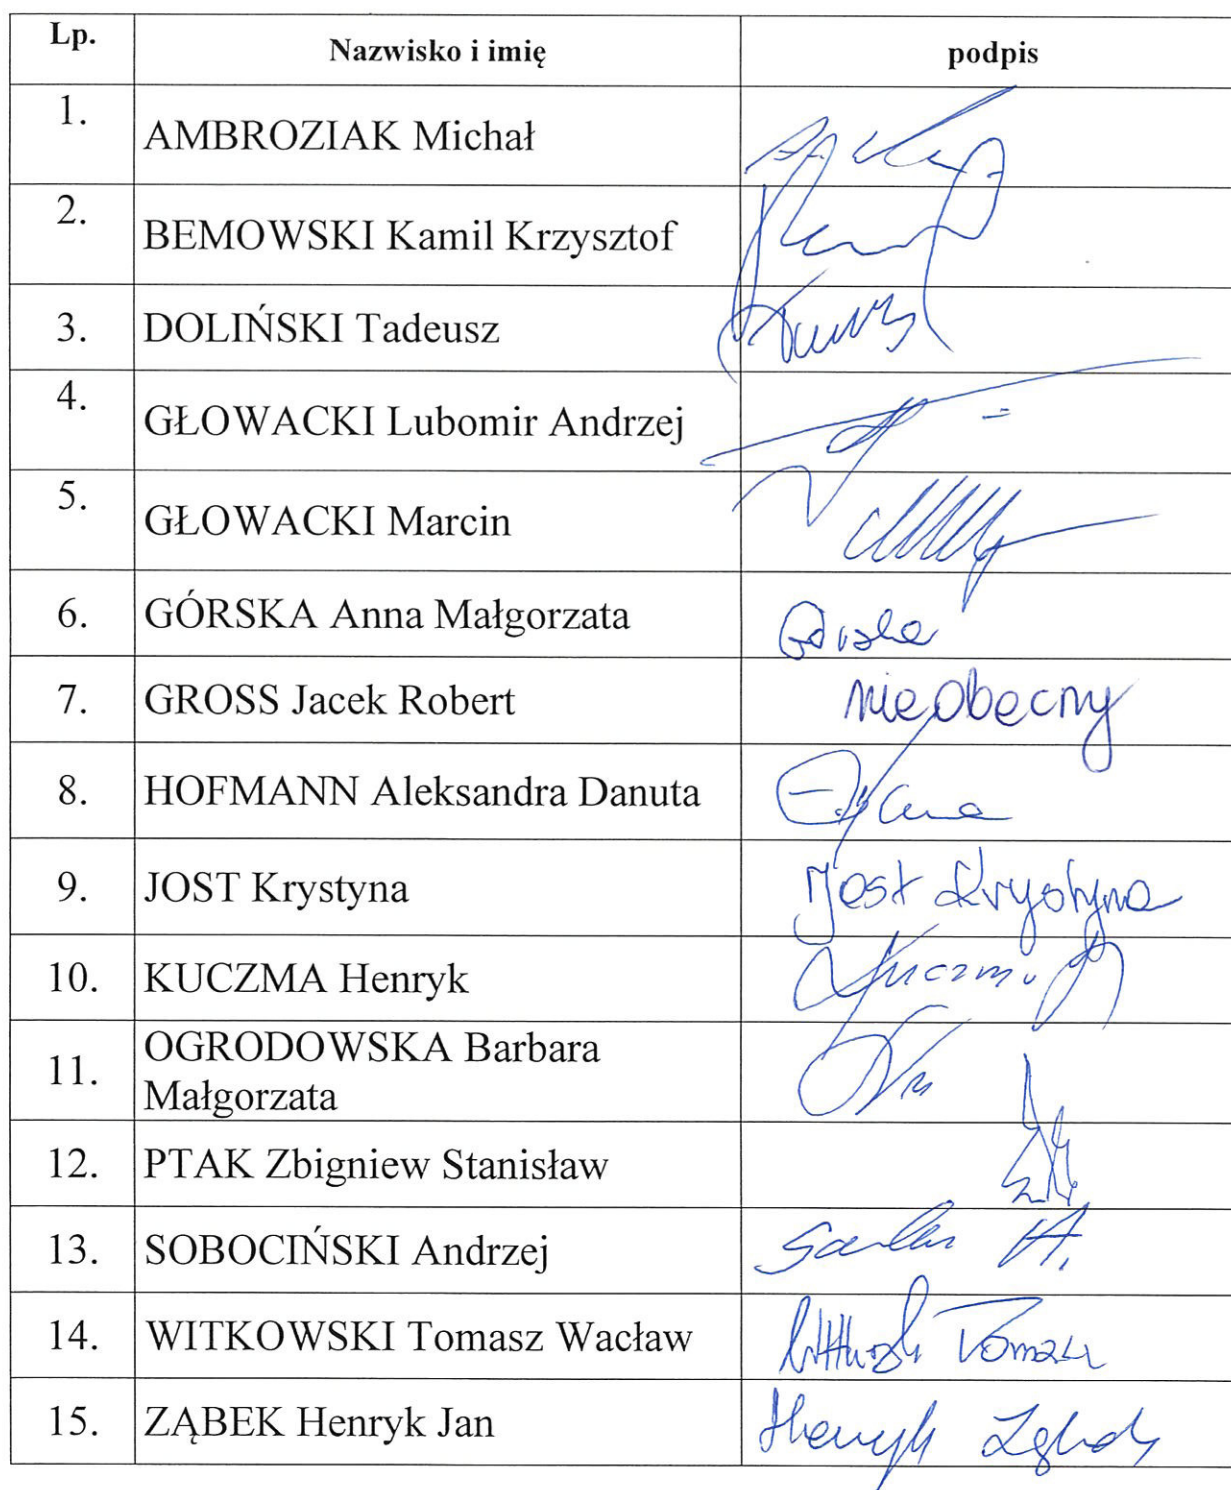 Lp. Nazwisko i imię podpis
1. AMBROZIAK Michał
2. BEMOWSKI Kamil Krzysztof
3. DOLIŃSKI Tadeusz
4. GŁOWACKI Lubomir Andrzej
5. GŁOWACKI Marcin
6. GÓRSKA Anna Małgorzata Górska
7. GROSS Jacek Robert nieobecny
8. HOFMANN Aleksandra Danuta
9. JOST Krystyna Jost Krystyna
10. KUCZMA Henryk Kuczma
11. OGRODOWSKA Barbara
Małgorzata
12. PTAK Zbigniew Stanisław
13. SOBOCIŃSKI Andrzej
14. WITKOWSKI Tomasz Wacław Tomasz
15. ZĄBEK Henryk Jan Henryk